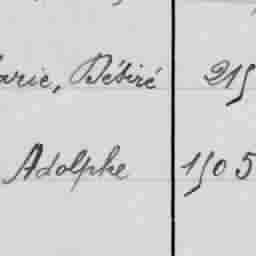 arie, Désiré 215
Adolphe 1505